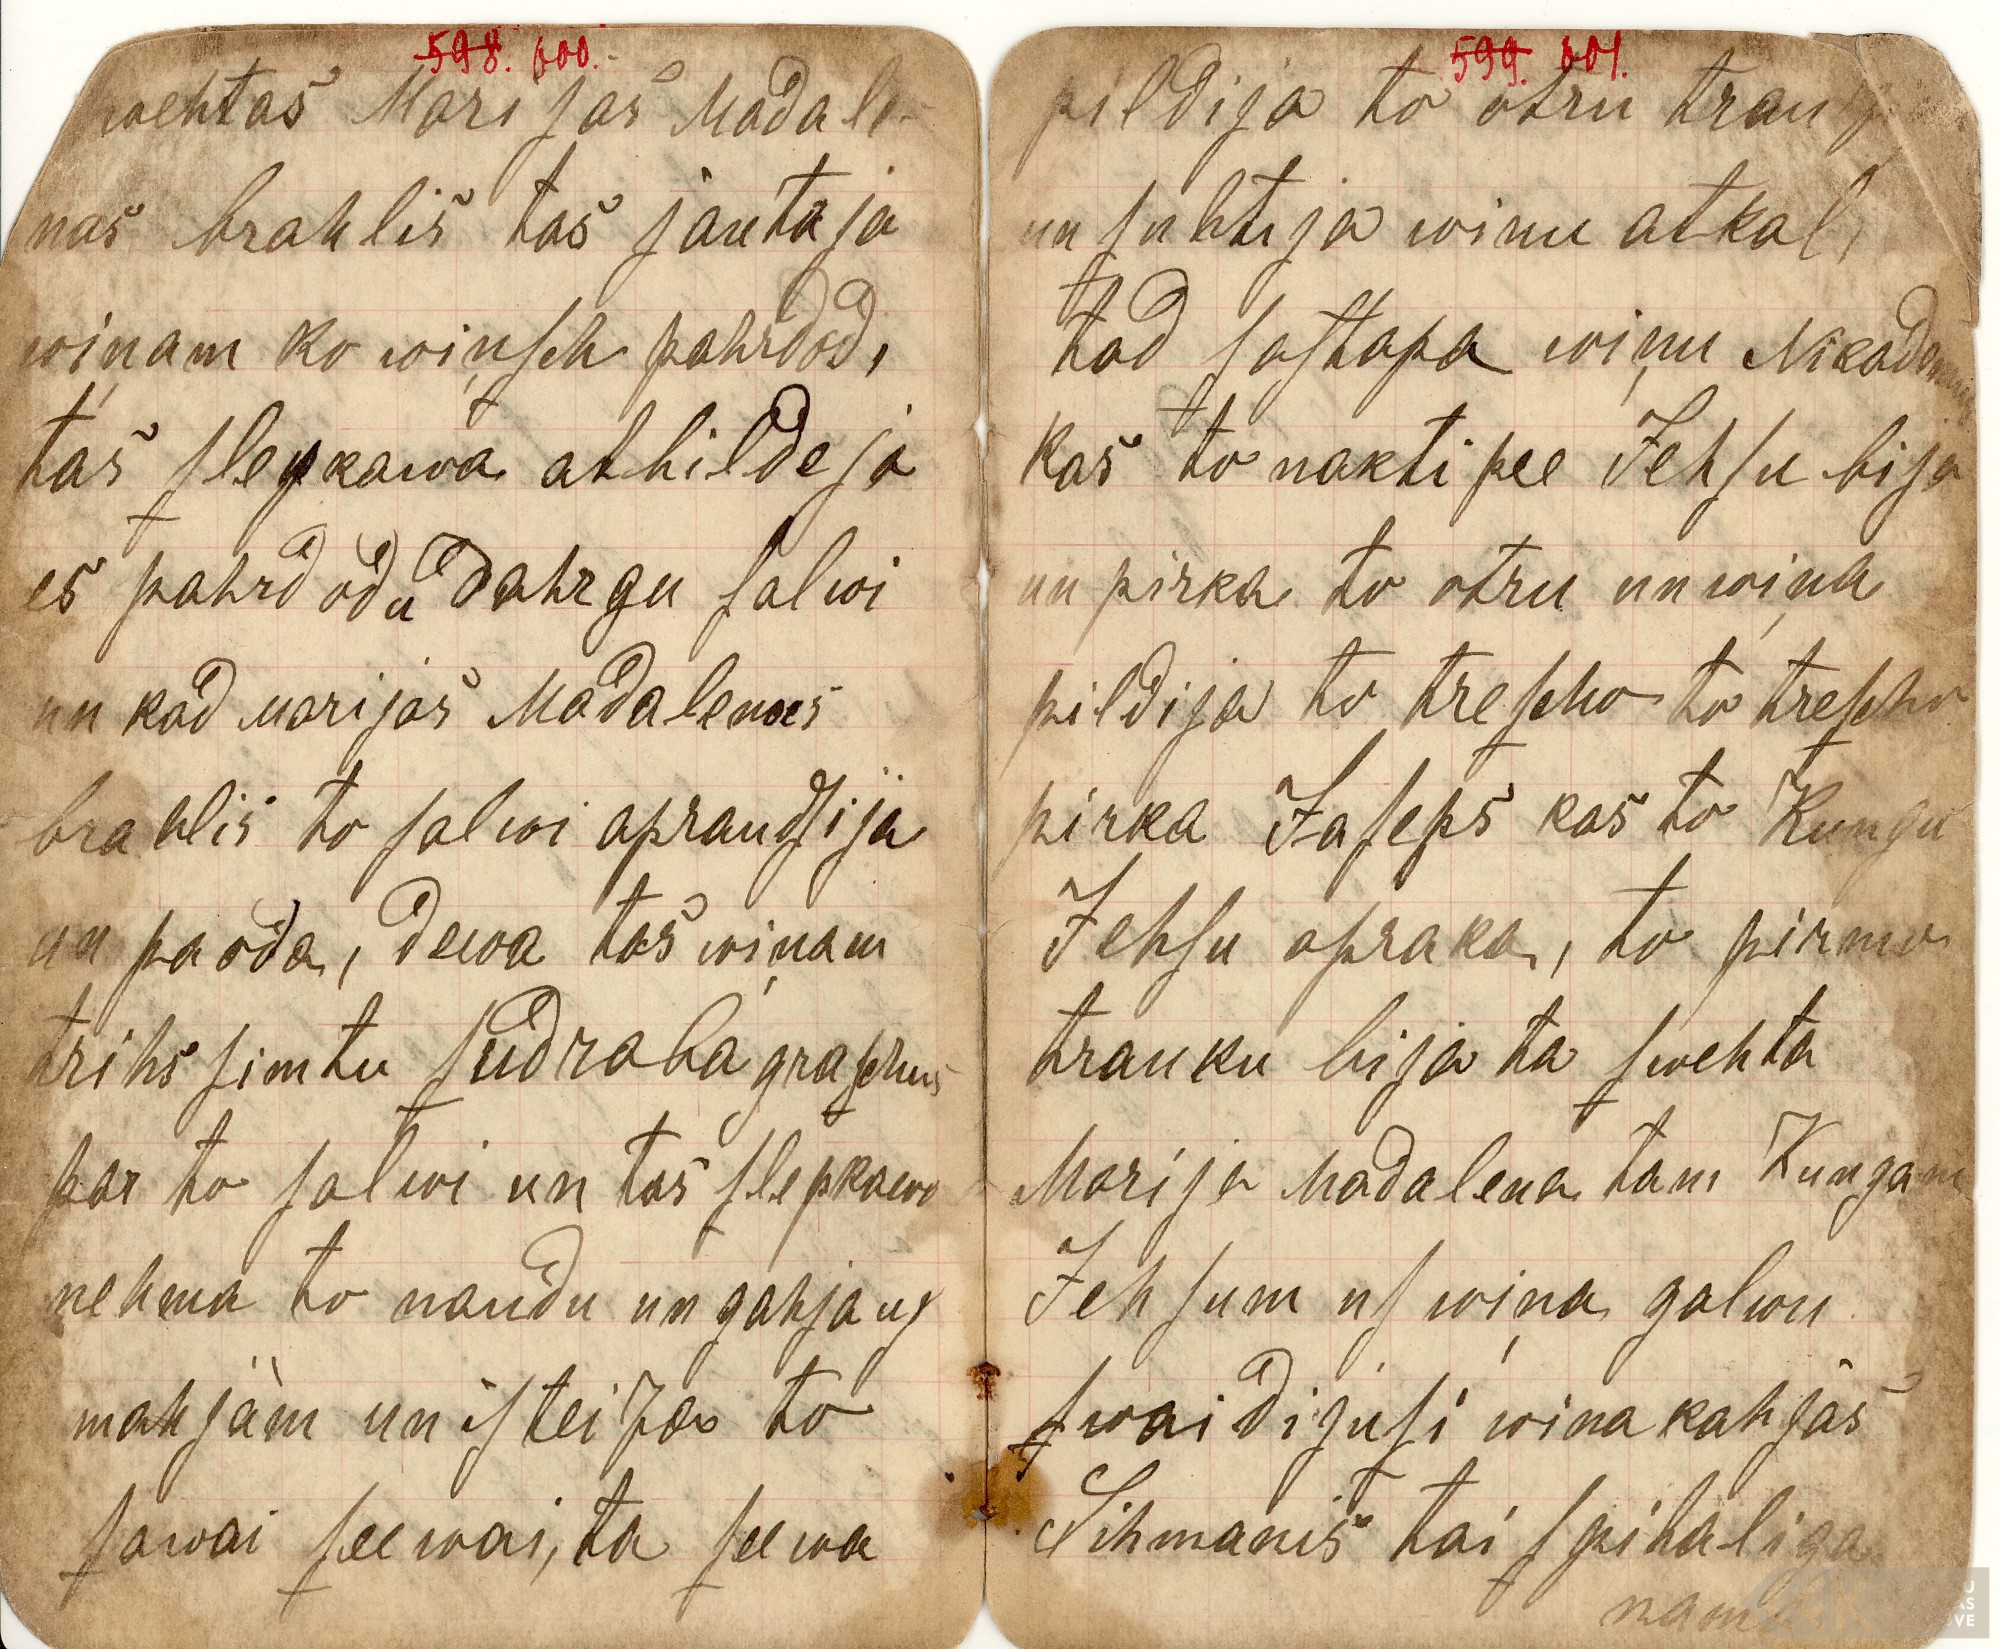 598. 600.
wehtas Marijas Madale-
nas brahlis tas jautaja
wiņam ko wiņſch pahrdod,
tas ſlepkawa atbildeja
es pahrdodu dahrgu ſalwi
un kad Marijas Madalenas
brahlis to ſalwi apraudſija
un paoda, dewa tas wiņam
trihs ſimtu ſudraba graſchus
par to ſalwi un tas ſlepkawa
nehma to naudu un gahja uſ
mahjàm un iſteiza to
ſawai ſeewai, ta ſeewa
599. 601.
pildija to otru trauku
un ſuhtija winu atkal,
tad ſaſtapa wiņu Nikadem
kas to nakti pee Jehſu bija
un pirka to otru un wiņa
pildija to treſcho to treſcho
pirka Jaſeps kas to Kungu
Jehſu apraka, to pirmo
trauku bija ta ſwehta
Marija Madalena tam Kungam
Jehſum uſ wiņa galwu
ſwaidijuſi wina kahjas
Sihmanis tai ſpitaliga
nam